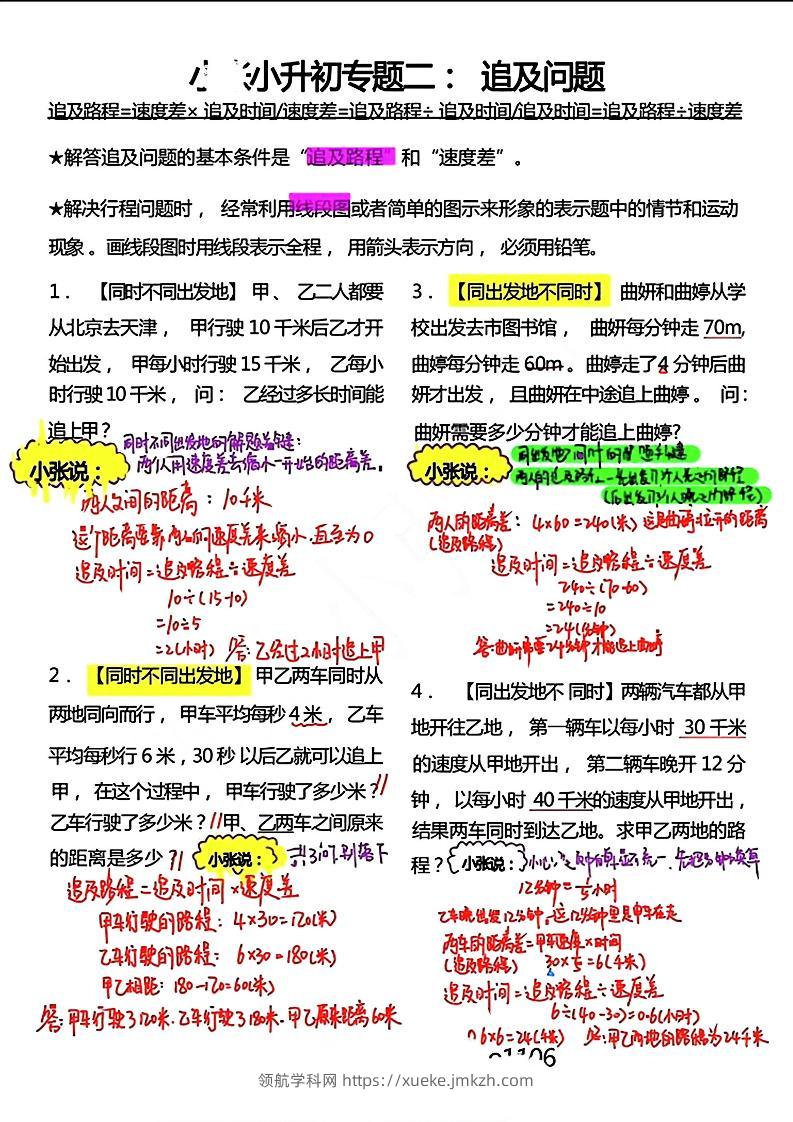 小升初专题二： 追及问题
追及路程=速度差× 追及时间/速度差=追及路程÷ 追及时间/追及时间=追及路程÷速度差
★解答追及问题的基本条件是“追及路程”和“速度差”。
★解决行程问题时， 经常利用线段图或者简单的图示来形象的表示题中的情节和运动
现象 。画线段图时用线段表示全程， 用箭头表示方向， 必须用铅笔。
1． 【同时不同出发地】 甲 、 乙二人都要
从北京去天津， 甲行驶 10 千米后乙才开
始出发， 甲每小时行驶 15 千米， 乙每小
时行驶 10 千米， 问： 乙经过多长时间能
追上甲？
同时不同出发地的解题关键：
小张说：
两人用速度差去缩小一开始的距离差。
两人之间的距离：10千米
这个距离要靠两人的速度差来缩小.直至为0
追及时间=追及路程÷速度差
10÷(15-10)
=10÷5
=2(小时) 答:乙经过2小时追上甲
2． 【同时不同出发地】 甲乙两车同时从
两地同向而行， 甲车平均每秒 4 米， 乙车
平均每秒行 6 米，30 秒 以后乙就可以追上
甲， 在这个过程中， 甲车行驶了多少米？
乙车行驶了多少米？ 甲、乙两车之间原来
的距离是多少？ 小张说： 共3问.别落下
追及路程=追及时间×速度差
甲车行驶的路程：4×30=120(米)
乙车行驶的路程：6×30=180(米)
甲乙相距：180-120=60(米)
答:甲车行驶了120米.乙车行驶了180米.甲乙原来距离60米
3． 【同出发地不同时】 曲妍和曲婷从学
校出发去市图书馆， 曲妍每分钟走 70m,
曲婷每分钟走 60m 。曲婷走了4 分钟后曲
妍才出发， 且曲妍在中途追上曲婷 。 问：
曲妍需要多少分钟才能追上曲婷?
小张说：
两人的距离差：4×60=240(米)
(追及路程)
追及时间=追及路程÷速度差
240÷(70-60)
=240÷10
=24(分钟)
答:曲妍需要24分钟才能追上曲婷
4． 【同出发地不 同时】两辆汽车都从甲
地开往乙地， 第一辆车以每小时 30 千米
的速度从甲地开出， 第二辆车晚开 12 分
钟， 以每小时 40 千米的速度从甲地开出，
结果两车同时到达乙地。求甲乙两地的路
程？ 小张说：
12分钟=1/5小时
乙车晚出发12分钟,这12分钟里是甲车在走
两车的距离差=甲车速度×时间
(追及路程) 30×1/5=6(千米)
追及时间=追及路程÷速度差
6÷(40-30)=0.6(小时)
答:甲乙两地的路程为24千米
领航学科网 https://xueke.jmkzh.com